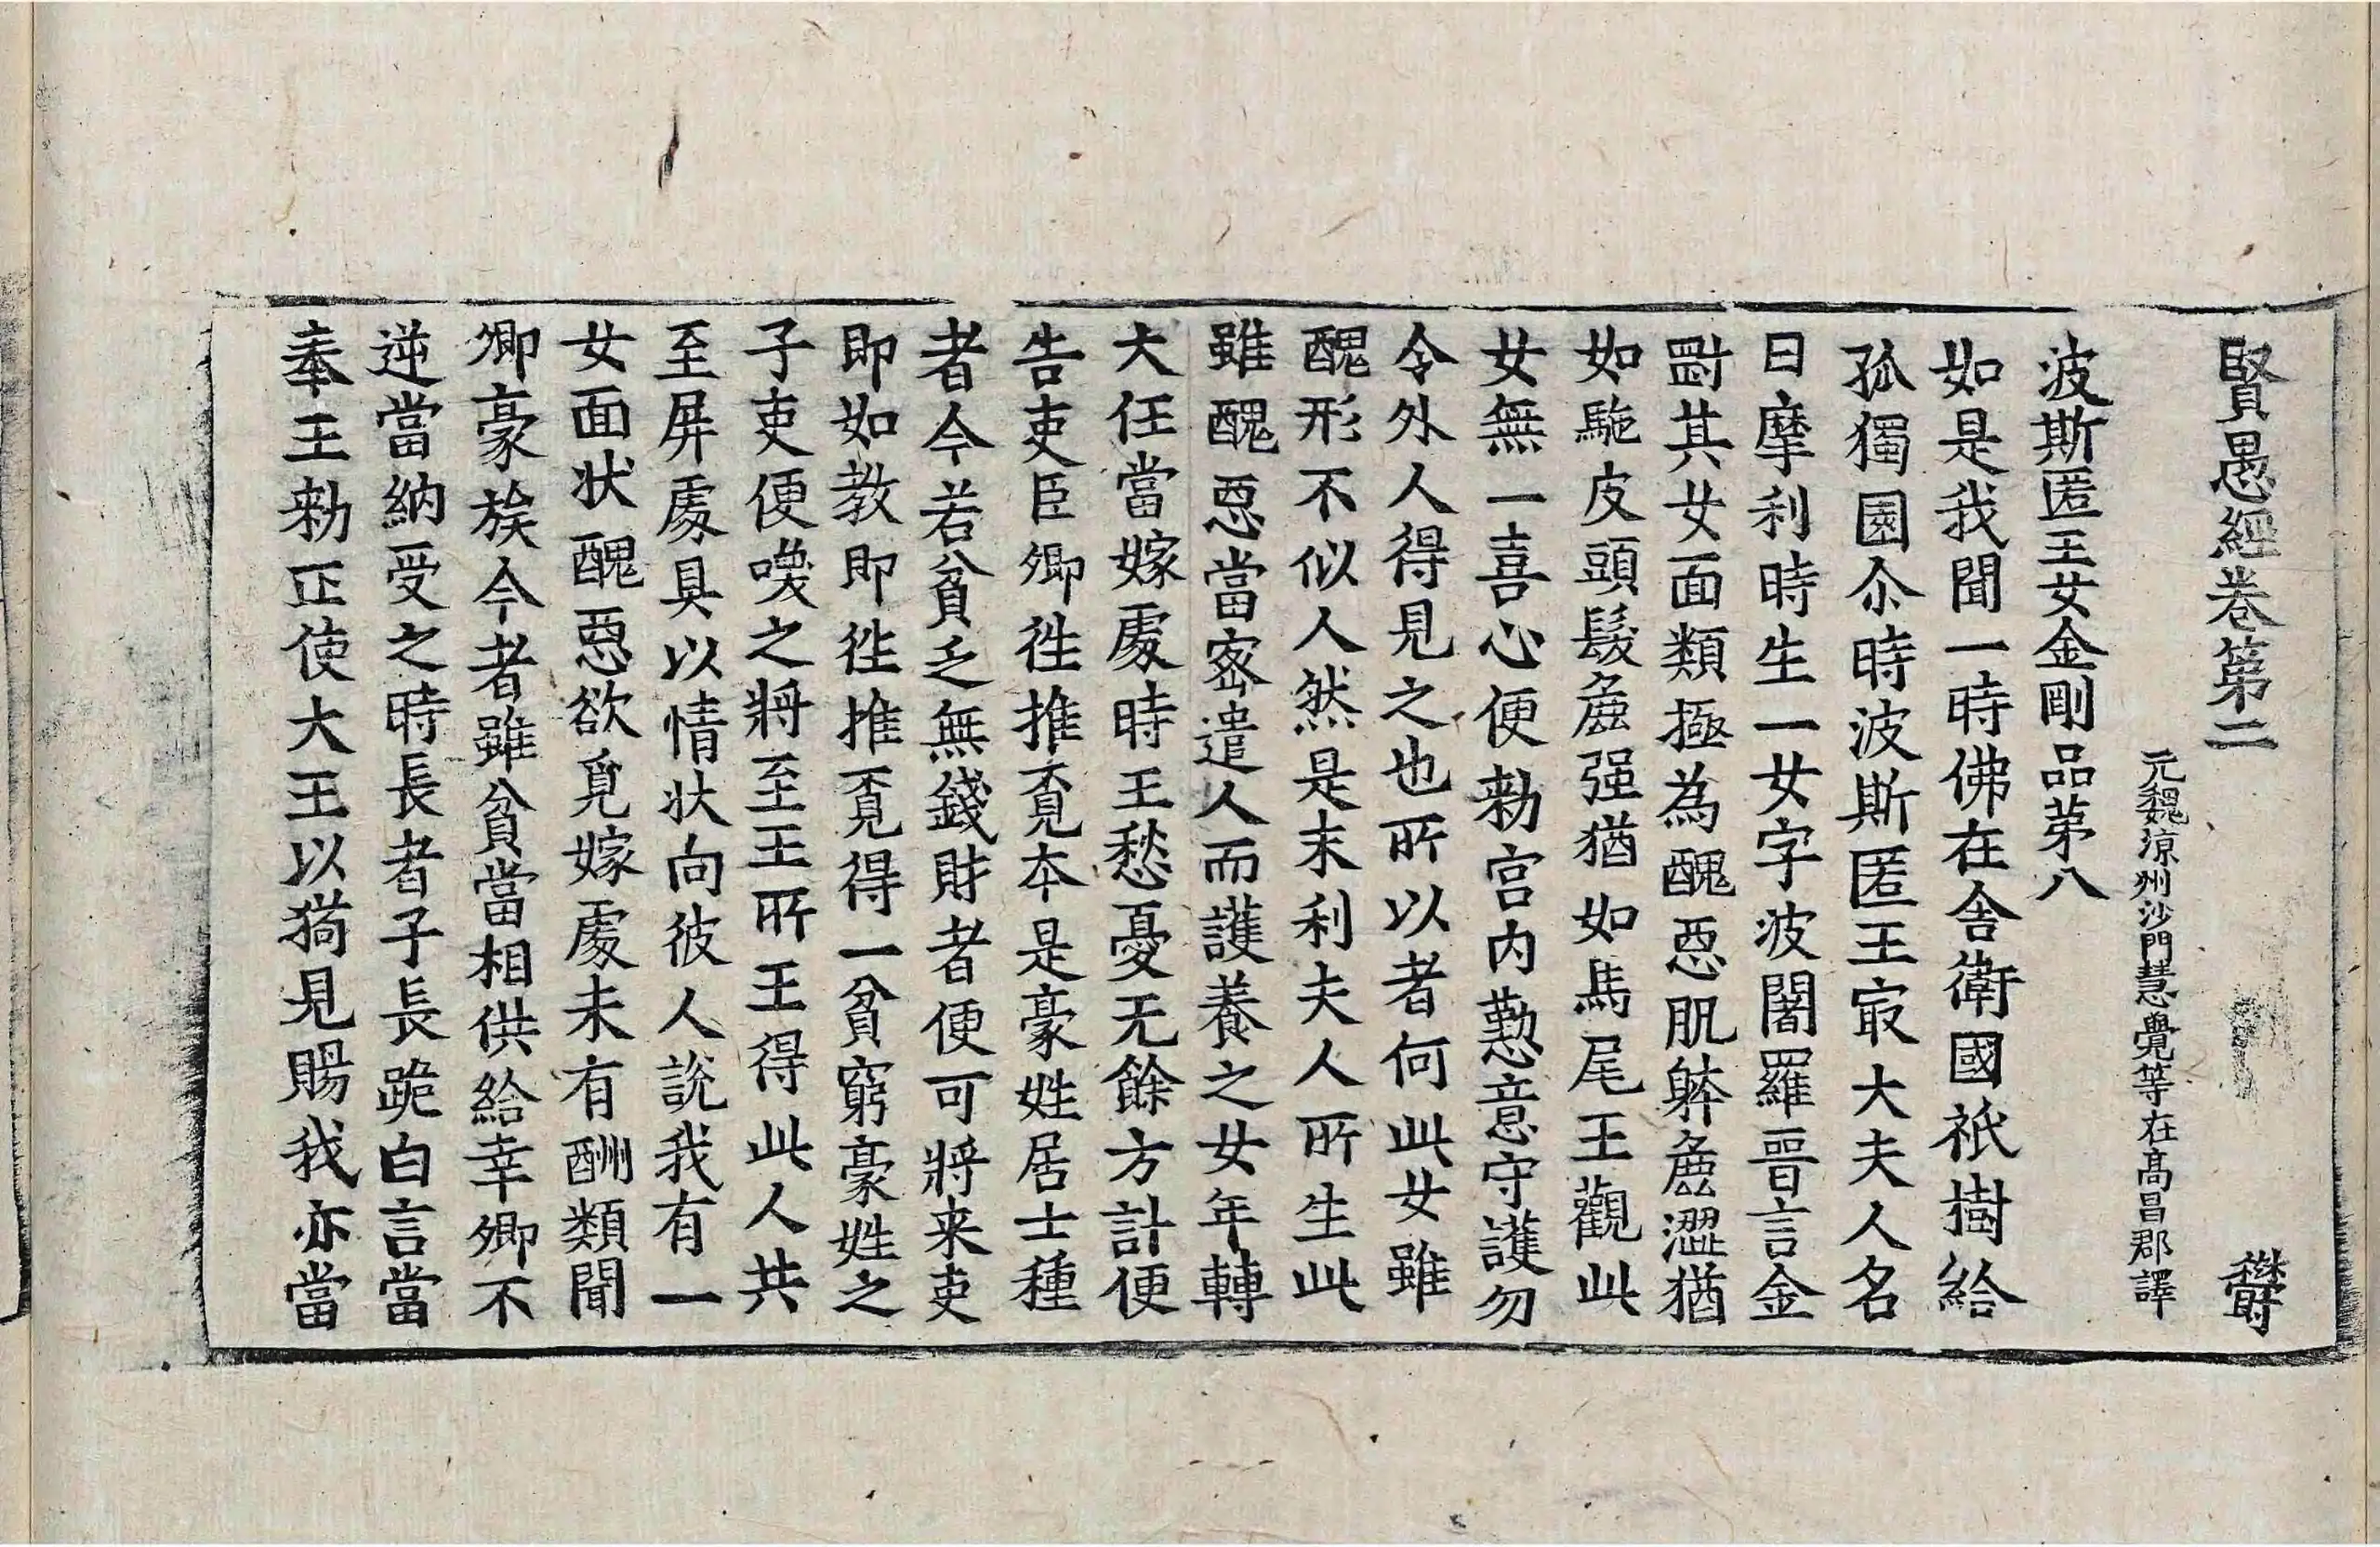 賢愚經卷第二 欝
元魏涼州沙門慧覺等在髙昌郡譯
波斯匿王女金剛品苐八
如是我聞一時佛在舍衛國祇樹給
孤獨園尒時波斯匿王㝡大夫人名
曰摩利時生一女字波闍羅晉言金
𠟺其女面類極為醜惡肌體麁澀猶
如駞皮頭髮麁强猶如馬尾王觀此
女無一喜心便勑宫內懃意守護勿
令外人得見之也所以者何此女雖
醜形不似人然是末利夫人所生此
雖醜惡當宻遣人而護養之女年轉
大任當嫁處時王愁憂无餘方計便
告吏臣卿徃推覔本是豪姓居士種
者今若貧乏無錢財者便可將来吏
即如教即徃推覔得一貧窮豪姓之
子吏便喚之將至王所王得此人共
至屏處具以情状向彼人說我有一
女面状醜惡欲覓嫁處未有酬類聞
卿豪族今者雖貧當相供給幸卿不
逆當納受之時長者子長跪白言當
奉王勑正使大王以狗見賜我亦當